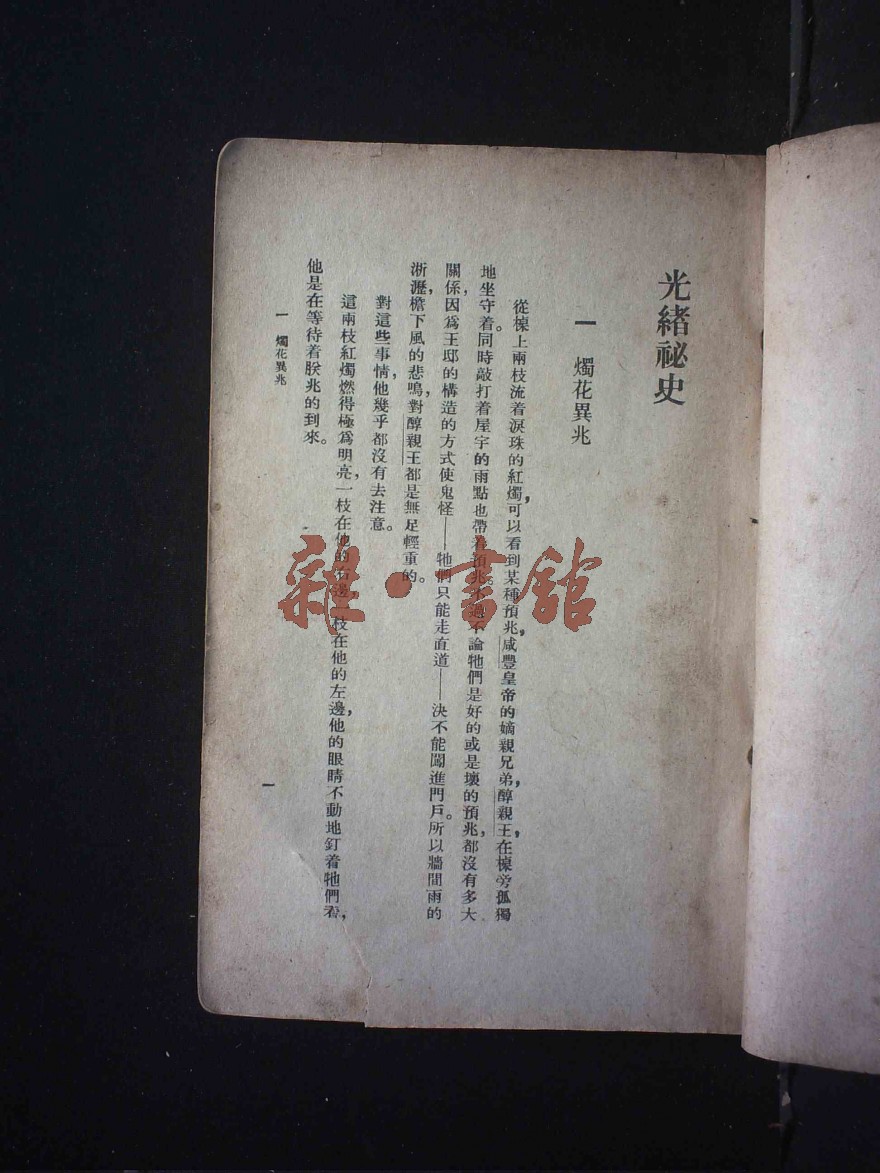 光緒祕史
一　燭花異兆
從棹上兩枝流着淚珠的紅燭，可以看到某種預兆，咸豐皇帝的嫡親兄弟醇親王，在棹旁孤獨
地坐守着。同時敲打着屋宇的雨點也帶着預兆不過不論牠們是好的或是壞的預兆，都沒有多大
關係，因爲王邸的構造的方式使鬼怪——牠們只能走直道——決不能闖進門戶。所以牆間雨的
淅瀝，檐下風的悲鳴，對醇親王都是無足輕重的。
對這些事情，他幾乎都沒有去注意。
這兩枝紅燭燃得極爲明亮，一枝在他的右邊一枝在他的左邊，他的眼睛不動地釘着牠們看，
他是在等待着朕兆的到來。
一　燭花異兆
一
雜·書館